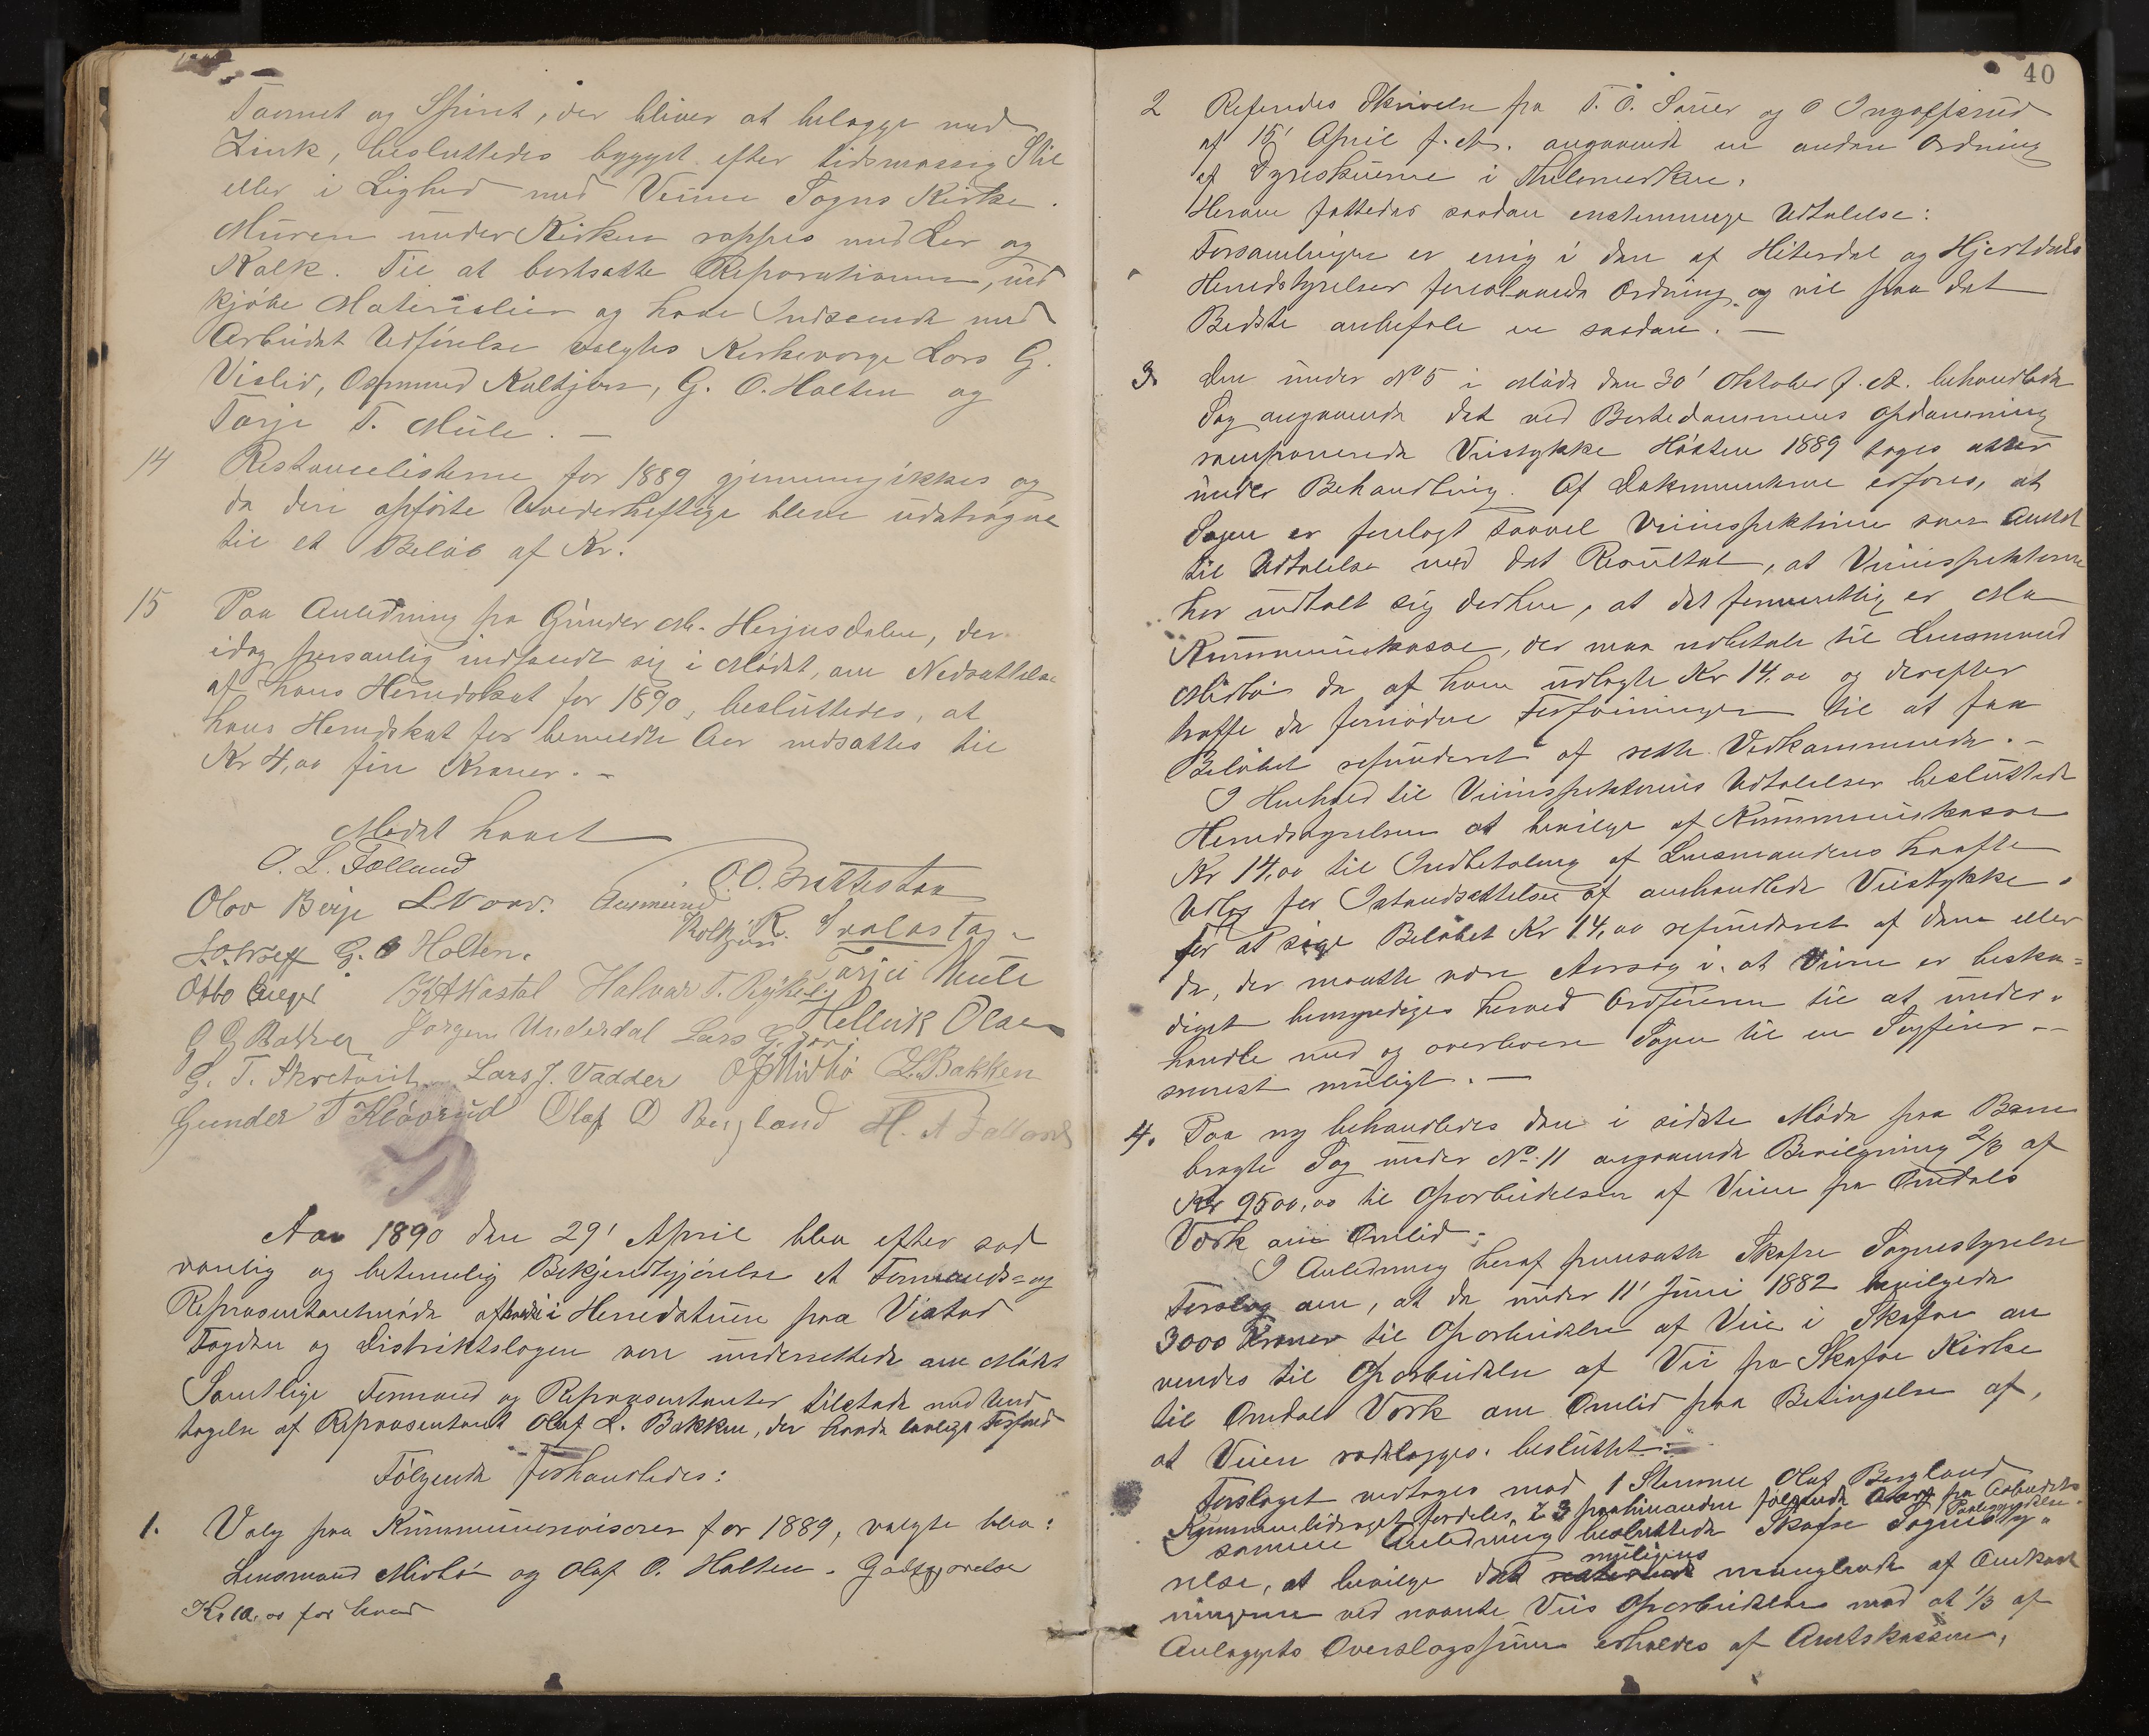 Taarnet og Spiret, der bliver at belægge med
Zink, besluttedes bygget efter tidsmæssig Stil
eller i Lighed med Vinje Sogns Kirke.
Muren under Kirken rappes med Ler og
Kalk. Til at bortsætte Reparationen, ind
kjøbe Materialier og have Indseende med
Arbeidet Udførelse valgtes Kirkeværge Lars G.
Vislid, Osmund Kultjøn, G. O. Holten og
Tarje T. Mule. —
14 Restancelisterne for 1889 gjennemgikkes og
da deri opførte Uvederheftige bleve udstrøgne
til et Beløb af Kr.
15 Paa Anledning fra Gunder M. Herjusdalen, der
idag personlig indfandt sig i Mødet, om Nedsættelse
af hans Herredskat for 1890, besluttedes, at
hans Herredskat for bemeldte Aar nedsættes til
Kr 4,00 fire Kroner. —
Mødet hævet
O. L. Felland
O. O. Brattestaa
Olav Berge L Noor. Aasmund Koltjøn
R. Svalastog
G. O. Holten. Tarjei Mule
Otto Halvar T. Hellek Olsen
G G Bakken Jørgen Underdal Lars G.
G. T. Lars J. Vadder O J Midbø L. Bakken
Gunder T Kløvrud Olaf O Bergland H. A
Aar 1890 den 29' April blev efter sed
vanlig og betimelig Bekjendtgjørelse et Formands- og
Repræsentantmøde afholdt i Herredstuen paa Vistad
Fogden og Distriktslægen vare underrettede om Mødet
Samtlige Formænd og Repræsentanter tilstede med Und
tagelse af Repræsentant Olaf L. Bakken, der havde lovligt Forfald
Følgende forhandledes:
1. Valg paa Kummunerevisorer for 1889, valgte blev:
Lensmand Midbø og Olaf O. Holten. Godtgjørelse
Kr 10.00 for hver
40
2 Referedes Skrivelse fra T. O. Sauer og O Ingolfsrud
af 15' April f. A. angaaende en anden Ordning
af Dyreskuerne i Thelemarken.
Herom fattedes saadan enstemmige Udtalelse:
Forsamlingen er enig i den af Hiterdal og Hjertdals
Herredstyrelser foreslaaede Ordning og vil paa det
Bedste anbefale en saadan. —
3. Den under No 5 i Møde den 30' Oktober f. A. behandlede
Sag angaaende det ved Bortedammens Opdæmning
ramponerede Veistykke Høsten 1889 toges atter
under Behandling. Af Dokumenterne erfores, at
Sagen er forelagt saavel Veiinspektøren som Amtet
til Udtalelse med det Resultat, at Veiinspektøren
har udtalt sig derhen, at det formentlig er
Kummunekasse, der maa udbetale til Lensmand
Midbø de af ham udlagte Kr 14.00 og derefter
træffe de fornødne Forføininger til at faa
Beløbet refunderet af rette Vedkommende. —
I Henhold til Veiinspektørens Udtalelser besluttede
Herredstyrelsen at bevilge af Kummunekassen
Kr 14.00 til Indbetaling af Lensmandens havte
Udlæg for Istandsættelse af omhandlede Veistykke.
For at søge Beløbet Kr 14,00 refunderet af den eller
de, der maatte være Aarsag i, at Veien er beska-
diget bemyndiges herved Ordføreren til at under-
handle med og overlevere Sagen til en Sagfører —
snarest muligt. —
4. Paa ny behandledes den i sidste Møde paa Bane
bragte Sag under No. 11 angaaende Bevilgning 2/3 af
Kr 9500,00 til Oparbeidelsen af Veien fra Omdals
Værk om Omlid.
I Anledning heraf fremsatte Skafse Sognestyrelse
Forslag om, at de under 11' Juni 1882 bevilgede
3000 Kroner til Oparbeidelse af Vei i Skafse an
vendes til Oparbeidelse af Vei fra Skafse Kirke
til Omdals Værk om Omlid paa Betingelse af,
at Veien rodelægges. besluttet:
Forslaget vedtages mod 1 Stemme Olaf Bergland
Kommunebidraget fordeles i 3 paahinanden følgende Aar fra Arbeidets Paabegyndelse.
samme Anledning besluttede Skafse Sognesty-
relse, at bevilge det muligens manglende af Omkost
ningerne ved nævnte Veis Oparbeidelse mod at 1/3 af
Anlæggets Overslagssum erholdes af Amtskassen,